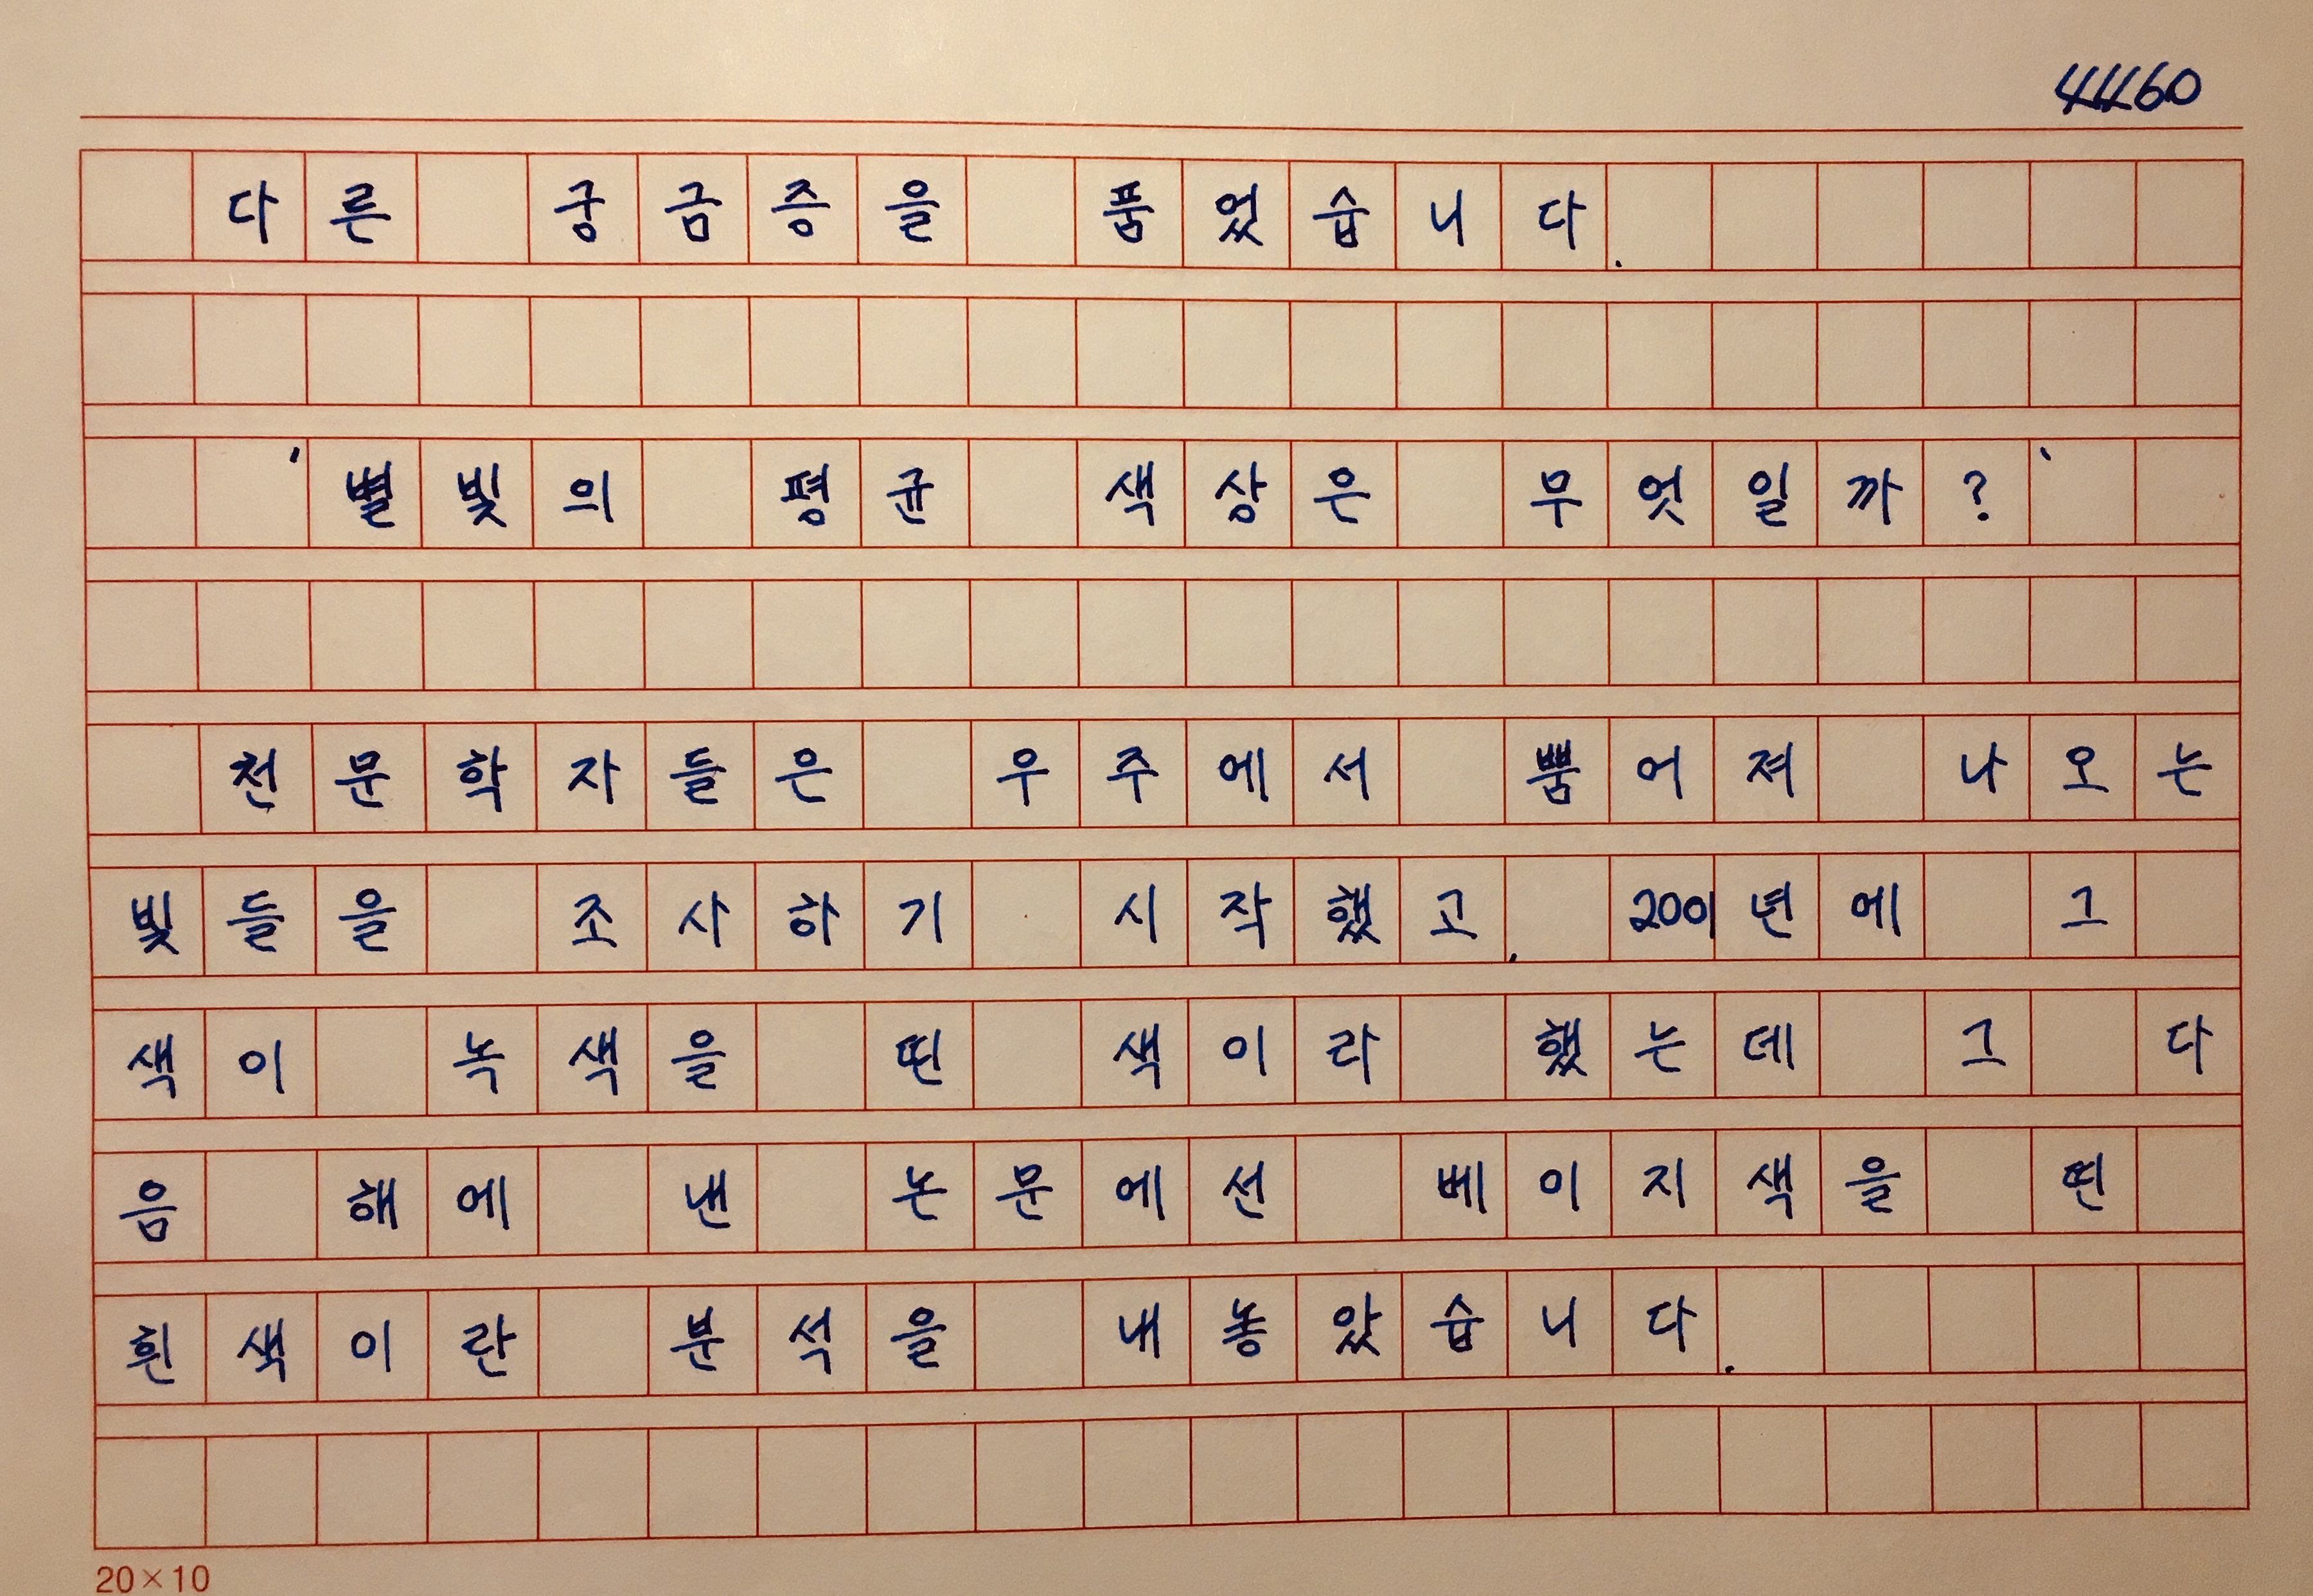 4460
다른 궁금증을 품었습니다.
'별빛의 평균 색상은 무엇일까?'
천문학자들은 우주에서 뿜어져 나오는
빛들을 조사하기 시작했고, 2001년에 그
색이 녹색을 띤 색이라 했는데 그 다
음 해에 낸 논문에선 베이지색을 띤
흰색이란 분석을 내놓았습니다.
20×10